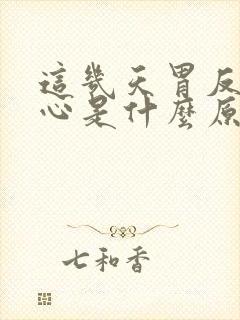 這幾天胃反
心是什麼原
七和香